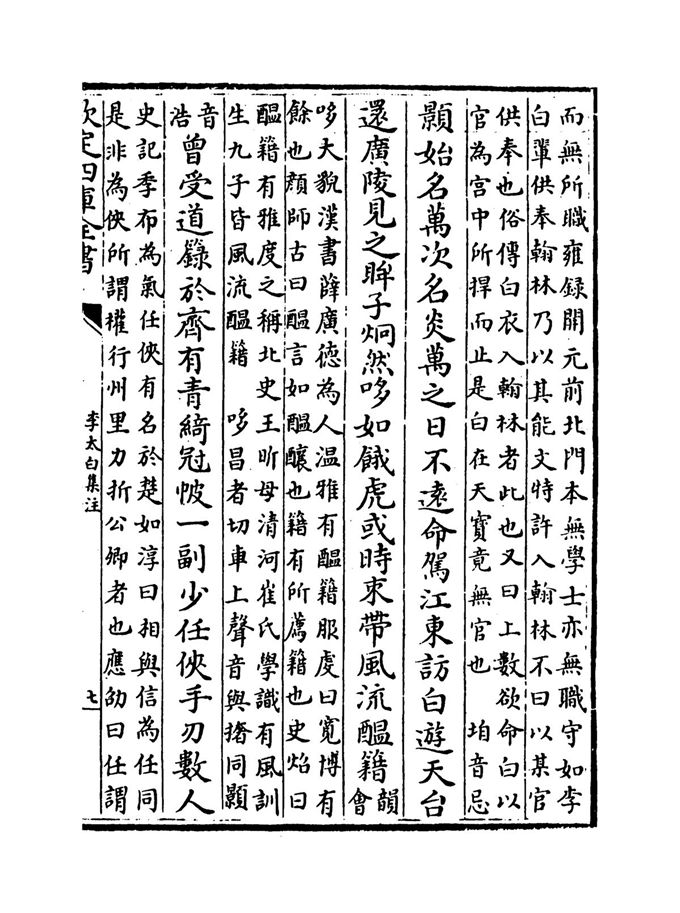 而無所職雍録開元前北門本無學士亦無職守如李
白輩供奉翰林乃以其能文特許入翰林不曰以某官
供奉也俗傳白衣入翰林者此也又曰上數欲命白以
官為宫中所捍而止是白在天寶竟無官也　垍音忌
顥始名萬次名炎萬之日不遠命駕江東訪白遊天台
還廣陵見之眸子炯然哆如餓虎或時束帶風流醖籍韻
會
哆大貌漢書薛廣德為人温雅有醖籍服䖍曰寛博有
餘也顔師古曰醖言如醖釀也籍有所薦籍也史炤曰
醖籍有雅度之稱北史王昕母清河崔氏學識有風訓
生九子皆風流醖籍　哆昌者切車上聲音與撦同顥
音
浩曾受道籙於齊有青綺冠帔一副少任俠手刃數人
史記季布為氣任俠有名於楚如淳曰相與信為任同
是非為俠所謂權行州里力折公卿者也應劭曰任謂
欽定四庫全書
李太白集注
七